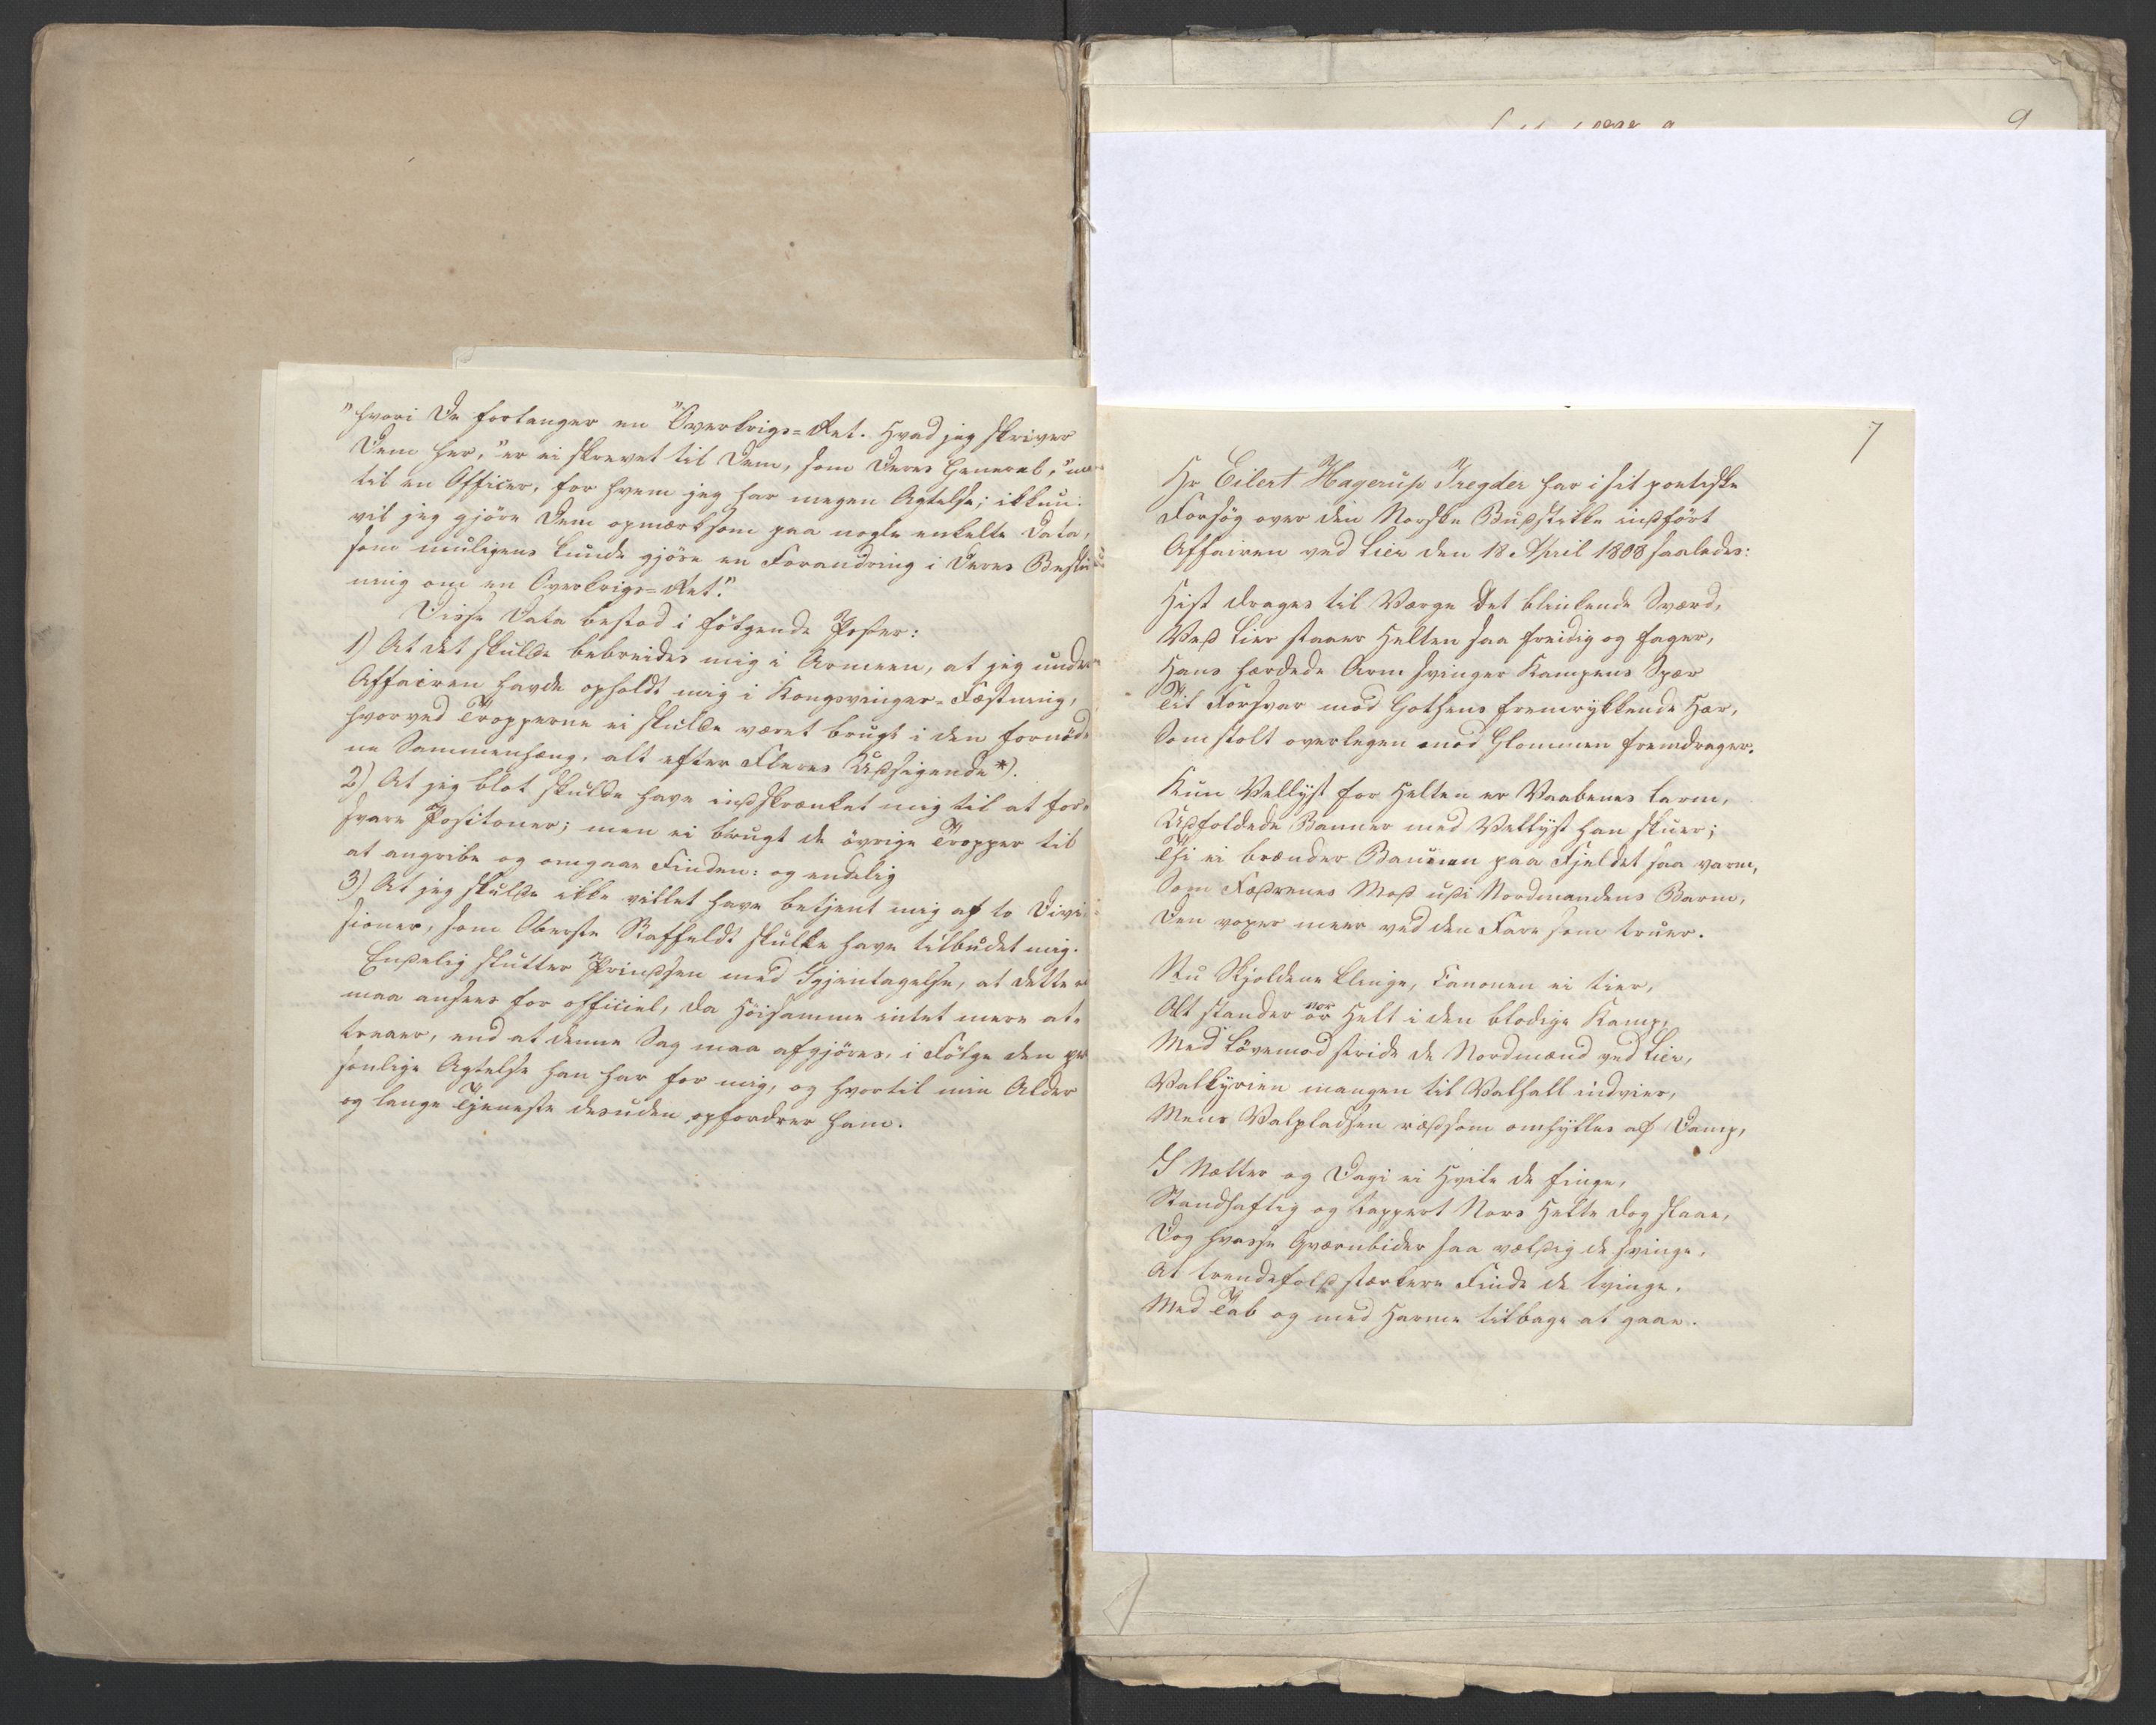 "hvori De forlanger en "Overkrigs=Ret. Hvad jeg skriver
Dem her, "er ei skrevet til Dem, som Deres General, "men
til en Officier, for hvem jeg har megen Agtelse; ikkun
vil jeg gjöre Dem opmærksom paa nogle enkelte Data,
som muligens kunde gjöre en Forandring i Deres
ning om en Overkrigs=Ret."
Disse Data bestod i fölgende Poster:
1) At det skulde bebreides mig i Armeen, at jeg under
Affairen havde opholdt mig i Kongsvinger-Fæstning,
hvorved Tropperne ei skulde været brugt i den fornöd-
ne Sammenhæng, alt efter Fleres Udsigende *).
2) At jeg blot skulde have indskrænket mig til at for-
svare Positioner; men ei brugt de övrige Tropper til
at angribe og omgaae Finden: og endelig
3) At jeg skulde ikke villet have betjent mig af to Divi-
sioner, som Oberste Staffeldt skulde have tilbudet mig.
Endelig slutter Prindsen med Igjentagelse, at dette ei
maa ansees for officiel, da Höisamme intet mere at-
traaer, end at denne Sag maa afgjöres, i Fölge den per
sonlige Agtelse han har for mig, og hvortil min Alder
og lange Tjeneste desuden opfordrer ham.
9
7
Hr Eilert Hagerup Tregder har i sit poetiske
Forsög over den Norske Budstikke indfört
Affairen ved Lier den 18 April 1808 saaledes:
Hist drages til Værge det blinkende Sværd,
Ved Lier staaer Helten saa freidig og fager,
Hans hærdede Arm svinger Kampens Spær
Til Forsvar mod Gothens fremrykkende Hær,
Som stolt overlegen mod Glommen fremdrager.
Kun Vellyst for Helten er Vaabenes Larm,
Udfoldede Banner med Vellyst han skuer;
Thi ei brænder Baunen paa Fjeldet saa varm,
Som Fædrenes Mod udi Nordmandens Barm,
Den voxer meer ved den Fare som truer.
Nu Skjoldene klinge, Kanonen ei tier,
Alt stander vor Helt i den blodige Kamp,
Med Lövemod stride de Nordmænd ved Lier,
Valkyrien mangen til Valhall indvier,
Mens Valpladsen rædsom omhylles af Damp,
I Nætter og Dage ei Hvile de finge,
Standhaftig og tappert Nors Helte dog staae,
Dog hvasse Qværnbider saa vældig de svinge,
At trendefold stærkere Finde de tvinge,
Med Tab og med Harme tilbage at gaae.